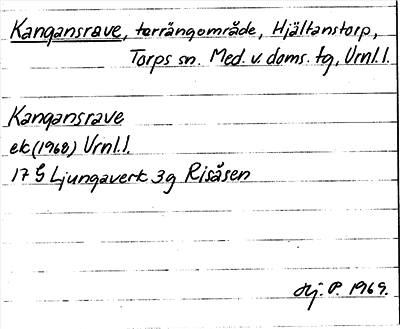 Kangansrave, terrängområde, Hjältanstorp,
Torps sn. Med. v. doms. tg, Urnl.l.
Kangansrave
ek (1968) Urnl.l.
17 G Ljungaverk 3g Risåsen
P. 1969.